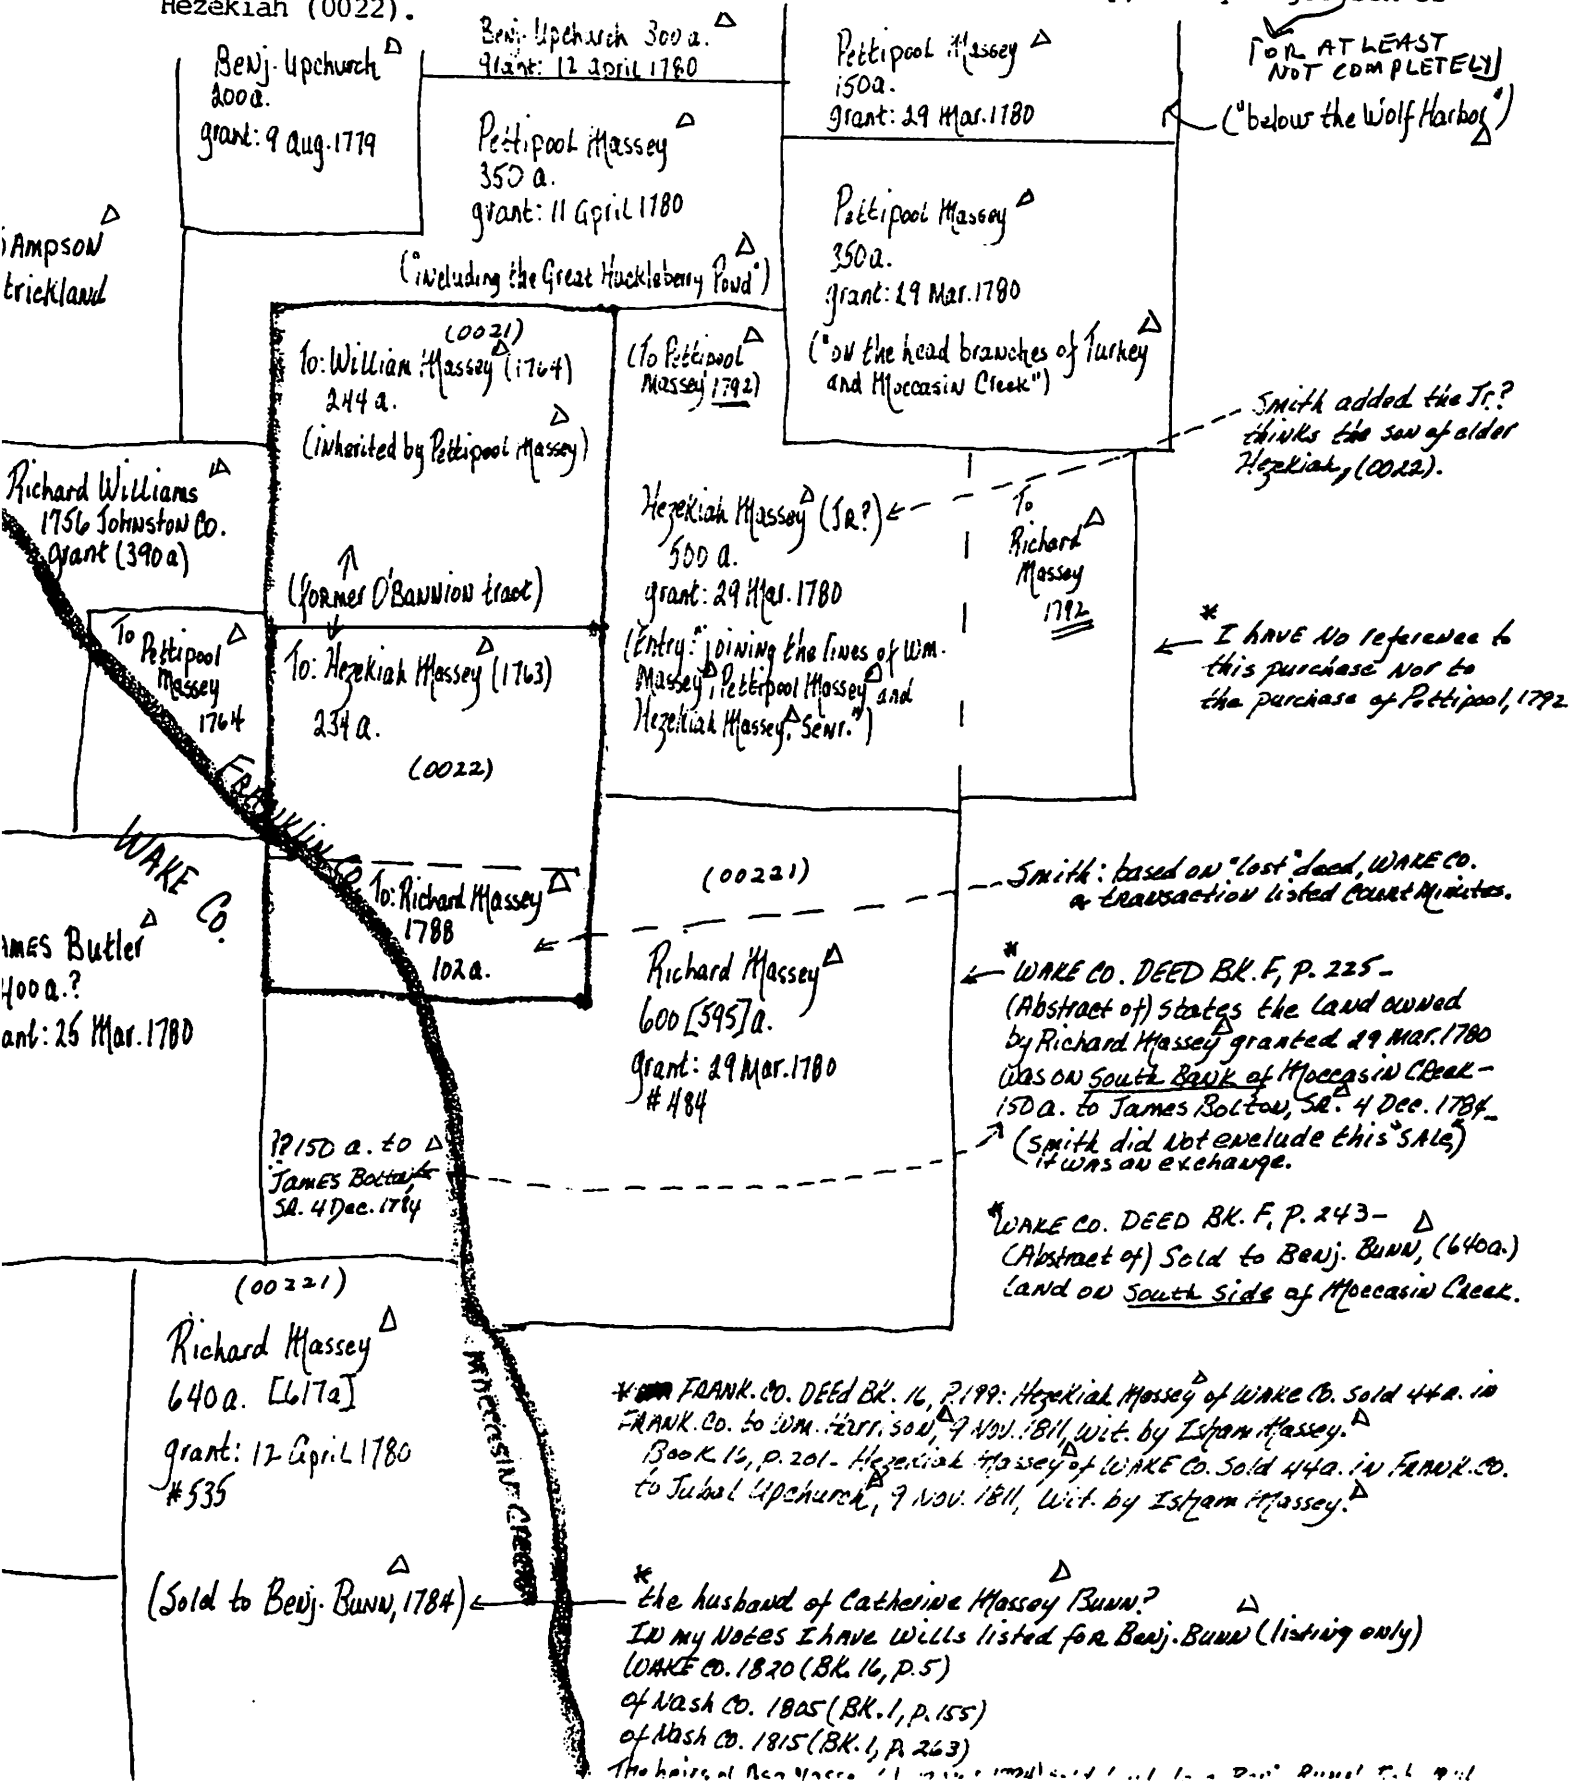 Hezekiah (0022).
Benj. Upchurch
200a.
grant: 9 Aug. 1779
Benj. Upchurch 300a.
grant: 12 April 1780
Pettipool Massey
350 a.
grant: 11 April 1780
("including the Great Huckleberry Pond")
Pettipool Massey
150a.
grant: 29 Mar. 1780
[OR AT LEAST
NOT COMPLETELY]
("below the Wolf Harbor")
Pettipool Massey
350a.
grant: 29 Mar. 1780
("on the head branches of Turkey
and Moccasin Creek")
Ampson
trickland
(0021)
To: William Massey (1764)
244 a.
(inherited by Pettipool Massey)
(former O'Bannion tract)
(To Pettipool
Massey 1792)
Smith added the Jr.?
thinks the son of elder
Hezekiah, (0022).
Richard Williams
1756 Johnston Co.
grant (390a)
Hezekiah Massey (JR?)
500 a.
grant: 29 Mar. 1780
(Entry: "joining the lines of Wm.
Massey, Pettipool Massey and
Hezekiah Massey, Senr.")
To
Richard
Massey
1792
* I have no reference to
this purchase nor to
the purchase of Pettipool, 1792
To
Pettipool
Massey
1764
To: Hezekiah Massey (1763)
234 a.
(0022)
FRANKLIN CO.
WAKE CO.
To: Richard Massey
1788
102 a.
(00221)
Richard Massey
600 [595] a.
grant: 29 Mar. 1780
#484
Smith: based on "lost" deed, WAKE CO.
a transaction listed Court Minutes.
AMES Butler
400 a.?
ant: 25 Mar. 1780
* WAKE CO. DEED BK. F, P. 225-
(Abstract of) states the land owned
by Richard Massey granted 29 Mar. 1780
was on South Bank of Moccasin Creek-
150 a. to James Bolton, SR. 4 Dec. 1784-
(Smith did not enclude this "SALE,"
it was an exchange.
?? 150 a. to
James Bolton,
SR. 4 Dec. 1784
* WAKE CO. DEED BK. F, P. 243-
(Abstract of) Sold to Benj. Bunn, (640a.)
Land on South Side of Moccasin Creek.
(00221)
Richard Massey
640 a. [617a]
grant: 12 April 1780
#535
(Sold to Benj. Bunn, 1784)
MOCCASIN CREEK
* FRANK. CO. DEED BK. 16, P. 199: Hezekiah Massey of WAKE CO. sold 44 a. in
FRANK. CO. to Wm. Harrison, 9 Nov. 1811, wit. by Isham Massey.
Book 16, p. 201- Hezekiah Massey of WAKE CO. sold 44a. in FRANK. CO.
to Jubal Upchurch, 9 Nov. 1811, Wit. by Isham Massey.
* the husband of Catherine Massey Bunn?
In my notes I have wills listed for Benj. Bunn (listing only)
WAKE CO. 1820 (BK. 16, P. 5)
of Nash Co. 1805 (BK. 1, P. 155)
of Nash Co. 1815 (BK. 1, P. 263)
The heirs of